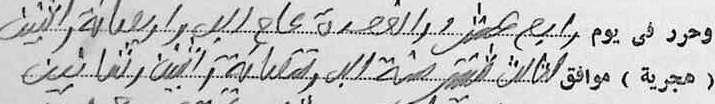 وحرر في يوم رابع عشر ذو القعدة عام الف واربعمائة واثنين
( هجرية ) موافق لثالث شتنبر سنة الف وتسعمائة واثنين وثمانين